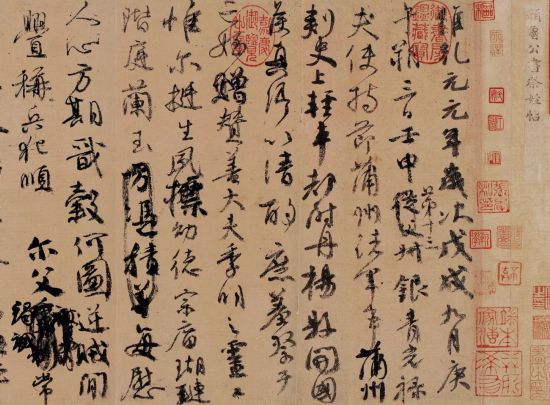 顔魯公書祭姪帖
維乾元元年歲次戊戌九月庚
午朔三日壬申第十三從父叔銀青光祿
夫使持節蒲州諸軍事蒲州
刺史上輕車都尉丹楊縣開國
侯真卿以清酌庶羞祭于
亡姪贈贊善大夫季明之靈
惟爾挺生夙標幼德宗廟瑚璉
階庭蘭玉方憑積善每慰
人心方期戩穀何圖逆賊閒
釁稱兵犯順爾父竭誠常
嘉慶御覽之寶